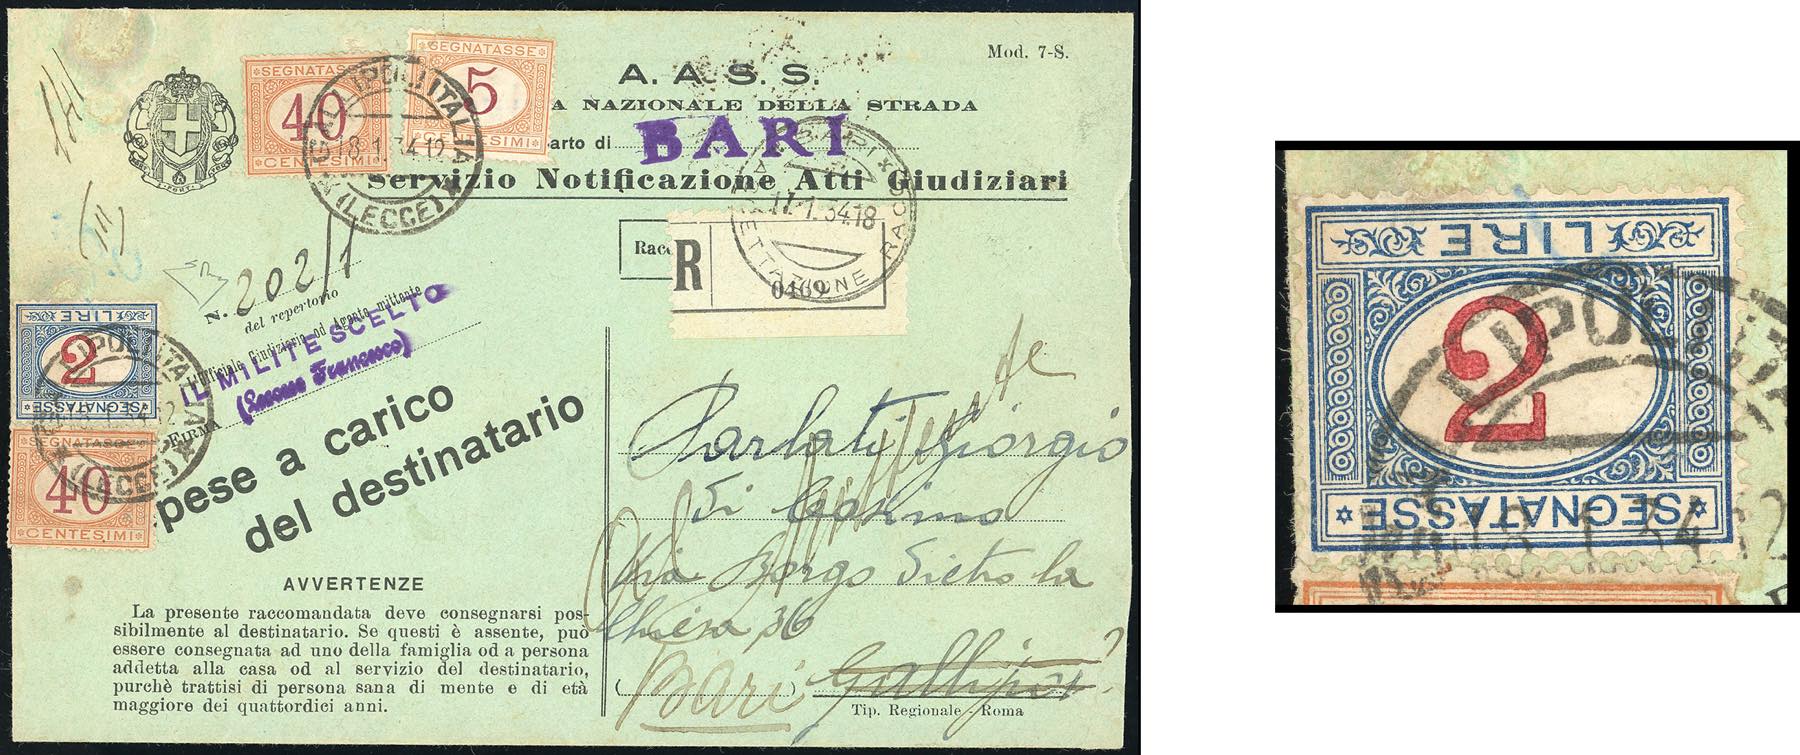 Mod. 7-S.
A. A. S. S.
A NAZIONALE DELLA STRADA
arto di BARI
Servizio Notificazione Atti Giudiziari
SEGNATASSE
40
CENTESIMI
SEGNATASSE
5
CENTESIMI
GALLIPOLI ITALIA
18.1.34.12
(LECCE)
BARI RACC
17.1.34.18
N. 202/1
del repertorio
L'Ufficiale Giudiziario od Agente mittente
IL MILITE SCELTO
FIRMA
Racc
R
0469
LIRE
2
SEGNATASSE
SEGNATASSE
40
CENTESIMI
(LECCE)
pese a carico
del destinatario
Parlati Giorgio
di Cosimo
Via Borgo Dietro la
Chiesa 36
Bari Gallipoli
Tip. Regionale - Roma
AVVERTENZE
La presente raccomandata deve consegnarsi pos-
sibilmente al destinatario. Se questi è assente, può
essere consegnata ad uno della famiglia od a persona
addetta alla casa od al servizio del destinatario,
purchè trattisi di persona sana di mente e di età
maggiore dei quattordici anni.
LIRE
2
SEGNATASSE